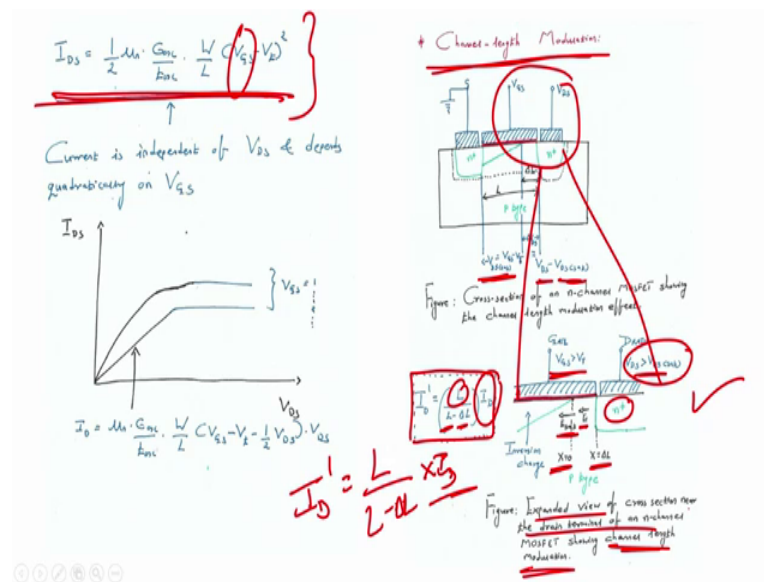 I_DS = 1/2 μn · Eox/tox · W/L (V_GS - V_t)²
Current is independent of V_DS & depends
quadratically on V_GS
I_DS
V_GS =
V_DS
I_D = μn · Eox/tox · W/L (V_GS - V_t - 1/2 V_DS) · V_DS
* Channel-length Modulation:
S
V_GS
V_DS
n+
n+
ΔL
L
P type
V_DS - V_DS(sat)
Figure: Cross-section of an n-channel MOSFET showing
the channel length modulation effect.
Gate
Drain
V_GS > V_t
V_DS > V_DS(sat)
I_D' = (L/L-ΔL) I_D
n+
Inversion
charge
X=0
X=ΔL
P type
I_D' = L/L-ΔL × I_D
Figure: Expanded view of cross section near
the drain terminal of an n-channel
MOSFET showing channel length
modulation.